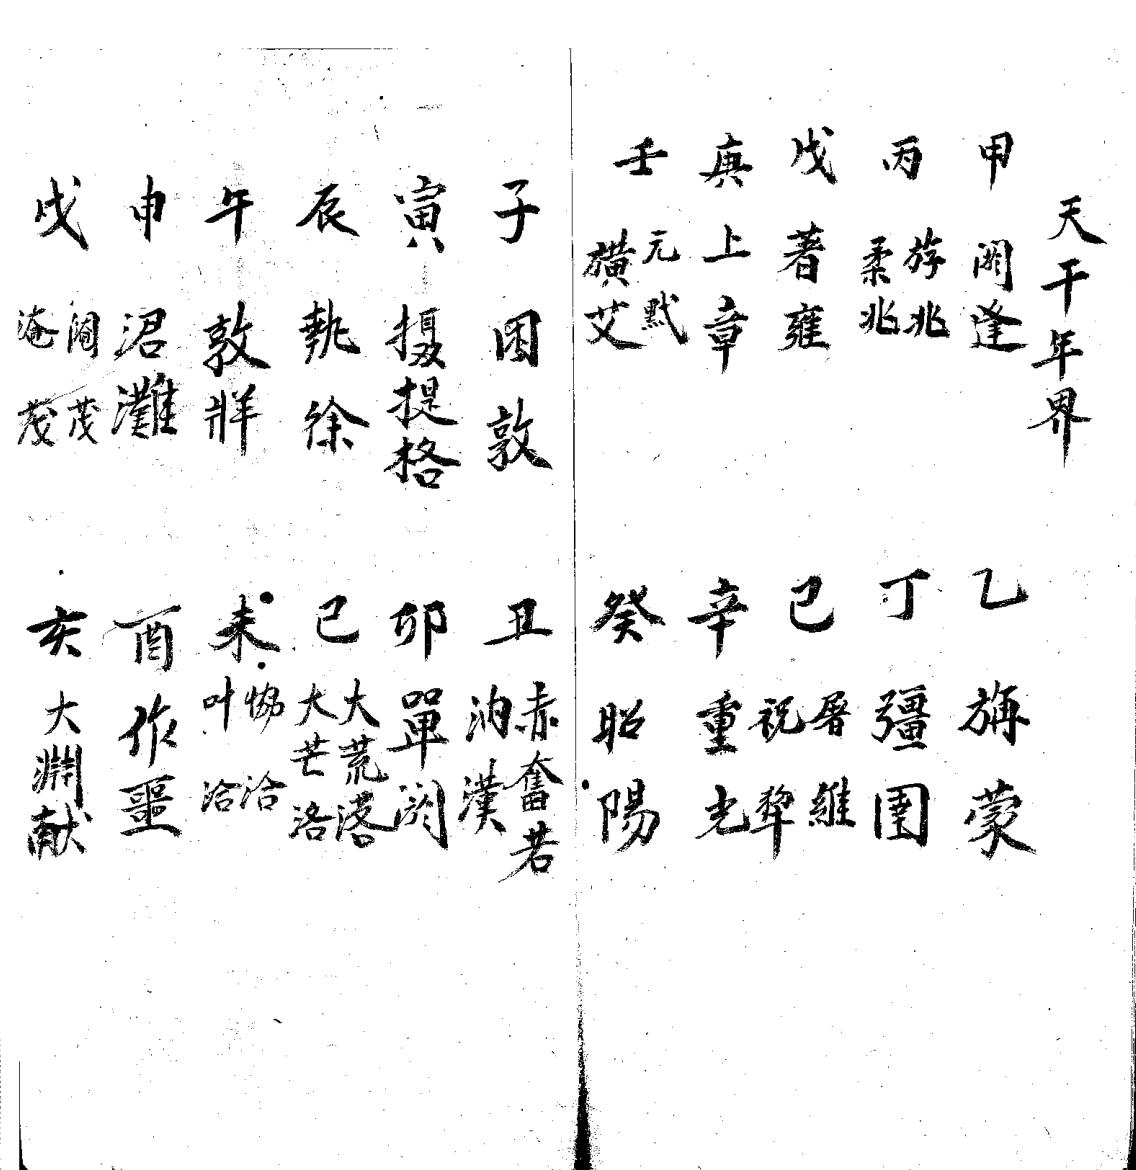 天干年界
甲 閼逢 乙 旃蒙
丙 游兆 柔兆 丁 彊圉
戊 著雍 己 屠維 祝犂
庚 上章 辛 重光
壬 元黓 横艾 癸 昭陽
子 困敦 丑 赤奮若 汭漢
寅 摄提格 卯 單閼
辰 執徐 巳 大荒落 大芒洛
午 敦牂 未 協洽 叶洽
申 涒灘 酉 作噩
戌 閹茂 淹茂 亥 大淵献